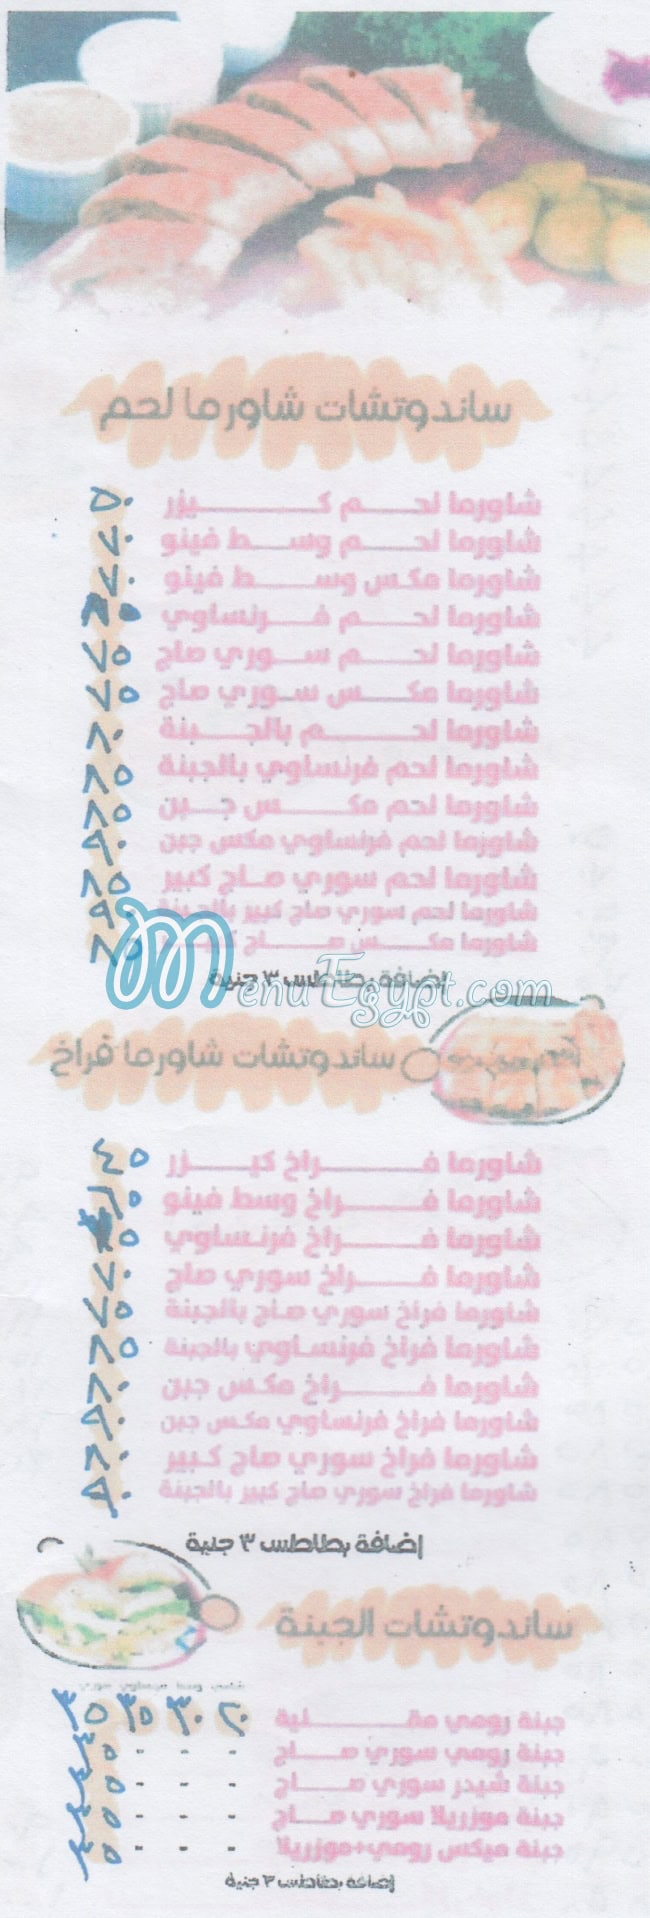 ساندوتشات شاورما لحم
شاورما لحم كيزر ٥٠
شاورما لحم وسط فينو ٧٠
شاورما مكس وسط فينو ٧٠
شاورما لحم فرنساوي
شاورما لحم سوري صاج ٧٥
شاورما مكس سوري صاج ٧٥
شاورما لحم بالجبنة ٨٠
شاورما لحم فرنساوي بالجبنة ٨٥
شاورما لحم مكس جبن ٨٥
شاورما لحم فرنساوي مكس جبن ٩٠
شاورما لحم سوري صاج كبير ٨٥
شاورما لحم سوري صاج كبير بالجبنة ٩٠
شاورما مكس صاج كبير ٨٥
إضافة بطاطس ٣ جنية
MenuEgypt.com
ساندوتشات شاورما فراخ
شاورما فراخ كيزر ٤٥
شاورما فراخ وسط فينو ٦٥
شاورما فراخ فرنساوي
شاورما فراخ سوري صاج ٧٠
شاورما فراخ سوري صاج بالجبنة ٧٥
شاورما فراخ فرنساوي بالجبنة ٨٥
شاورما فراخ مكس جبن ٨٠
شاورما فراخ فرنساوي مكس جبن ٩٠
شاورما فراخ سوري صاج كبير ٨٠
شاورما فراخ سوري صاج كبير بالجبنة ٩٠
إضافة بطاطس ٣ جنية
ساندوتشات الجبنة
شامي وسط فرنساوي سوري
جبنة رومي مقلية ٢٠ ٣٠ ٣٥ ٣٥
جبنة رومي سوري صاج - - - ٤٥
جبنة شيدر سوري صاج - - - ٤٥
جبنة موزريلا سوري صاج - - - ٤٥
جبنة ميكس رومي+موزريلا - - - ٤٥
إضافة بطاطس ٣ جنية